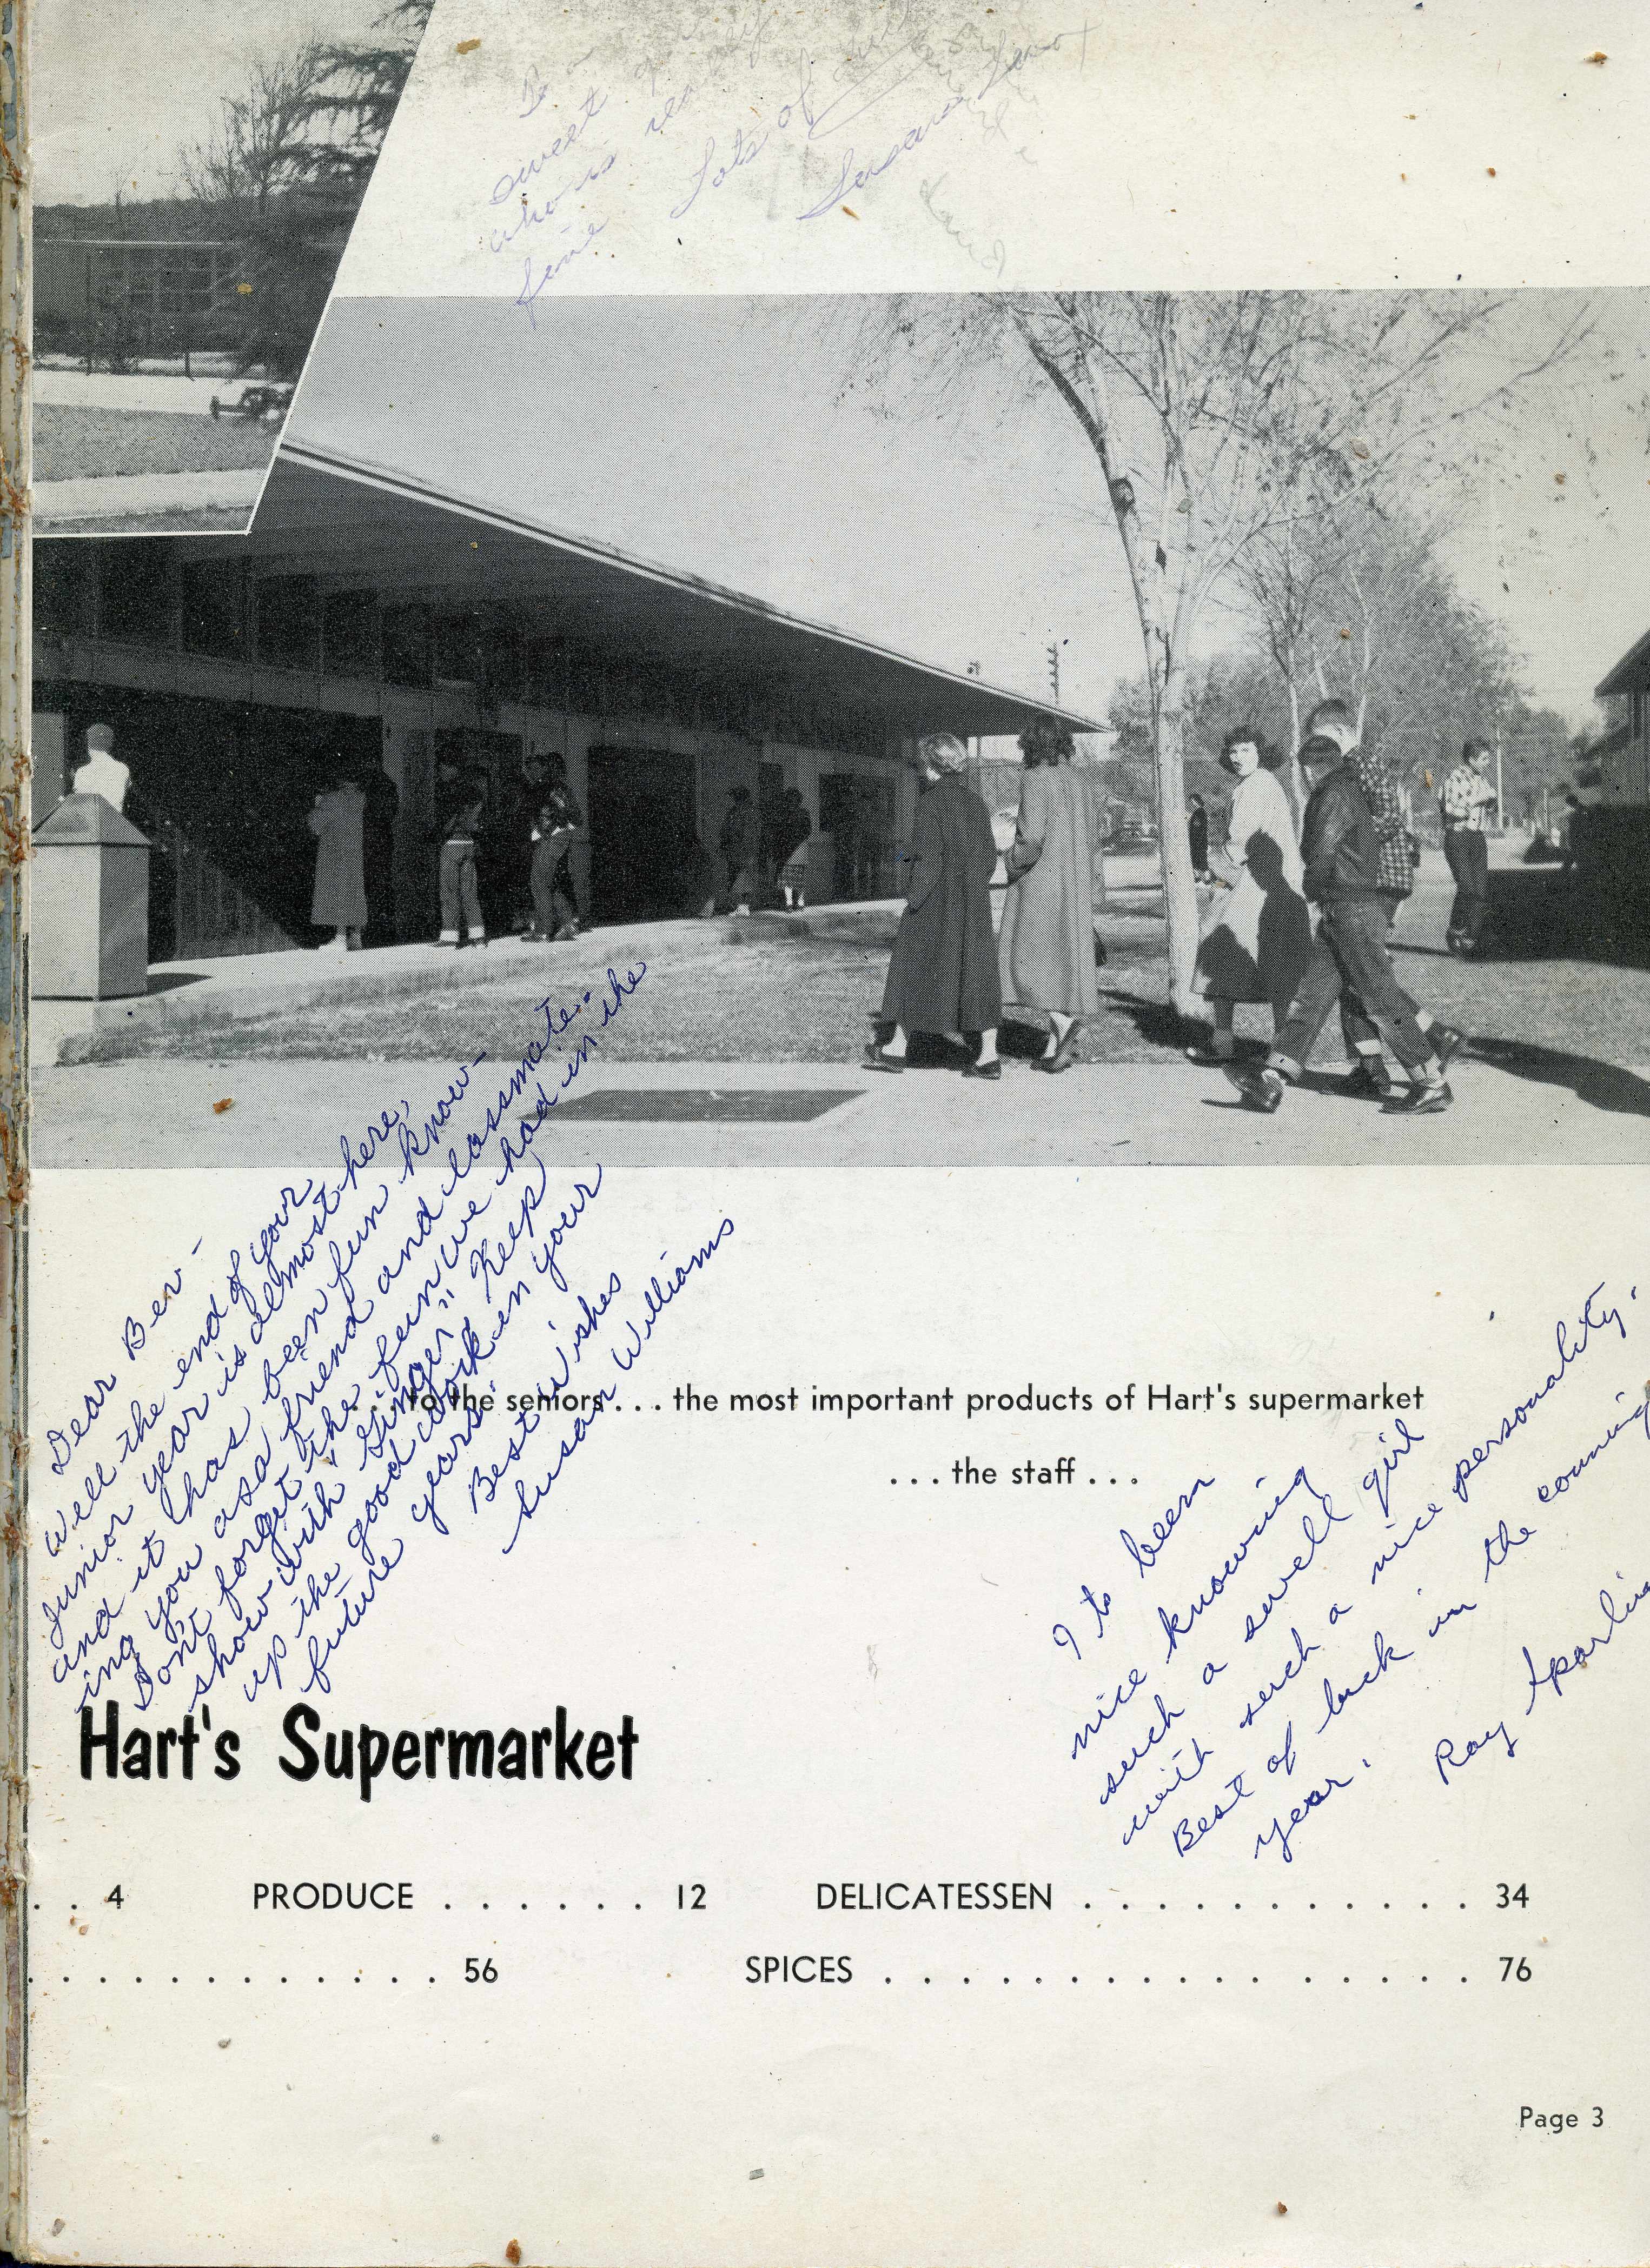 sweet
who is
fine
Lots of
Dear Bev-
Well the end of your
junior year is almost here,
and it has been fun know-
ing you as a friend and classmate.
Don't forget the fun we had in the
show with "Ginger" Keep
up the good work in your
future years.
Best Wishes
Susan Williams
. . . to the seniors . . . the most important products of Hart's supermarket
. . . the staff . . .
Its been
nice knowing
such a swell girl
with such a nice personality.
Best of luck in the coming
year.
Ray
Hart's Supermarket
. . 4 PRODUCE . . . . . . 12 DELICATESSEN . . . . . . . . . . . 34
. . . . . . . . . . . . 56 SPICES . . . . . . . . . . . . . . . . 76
Page 3